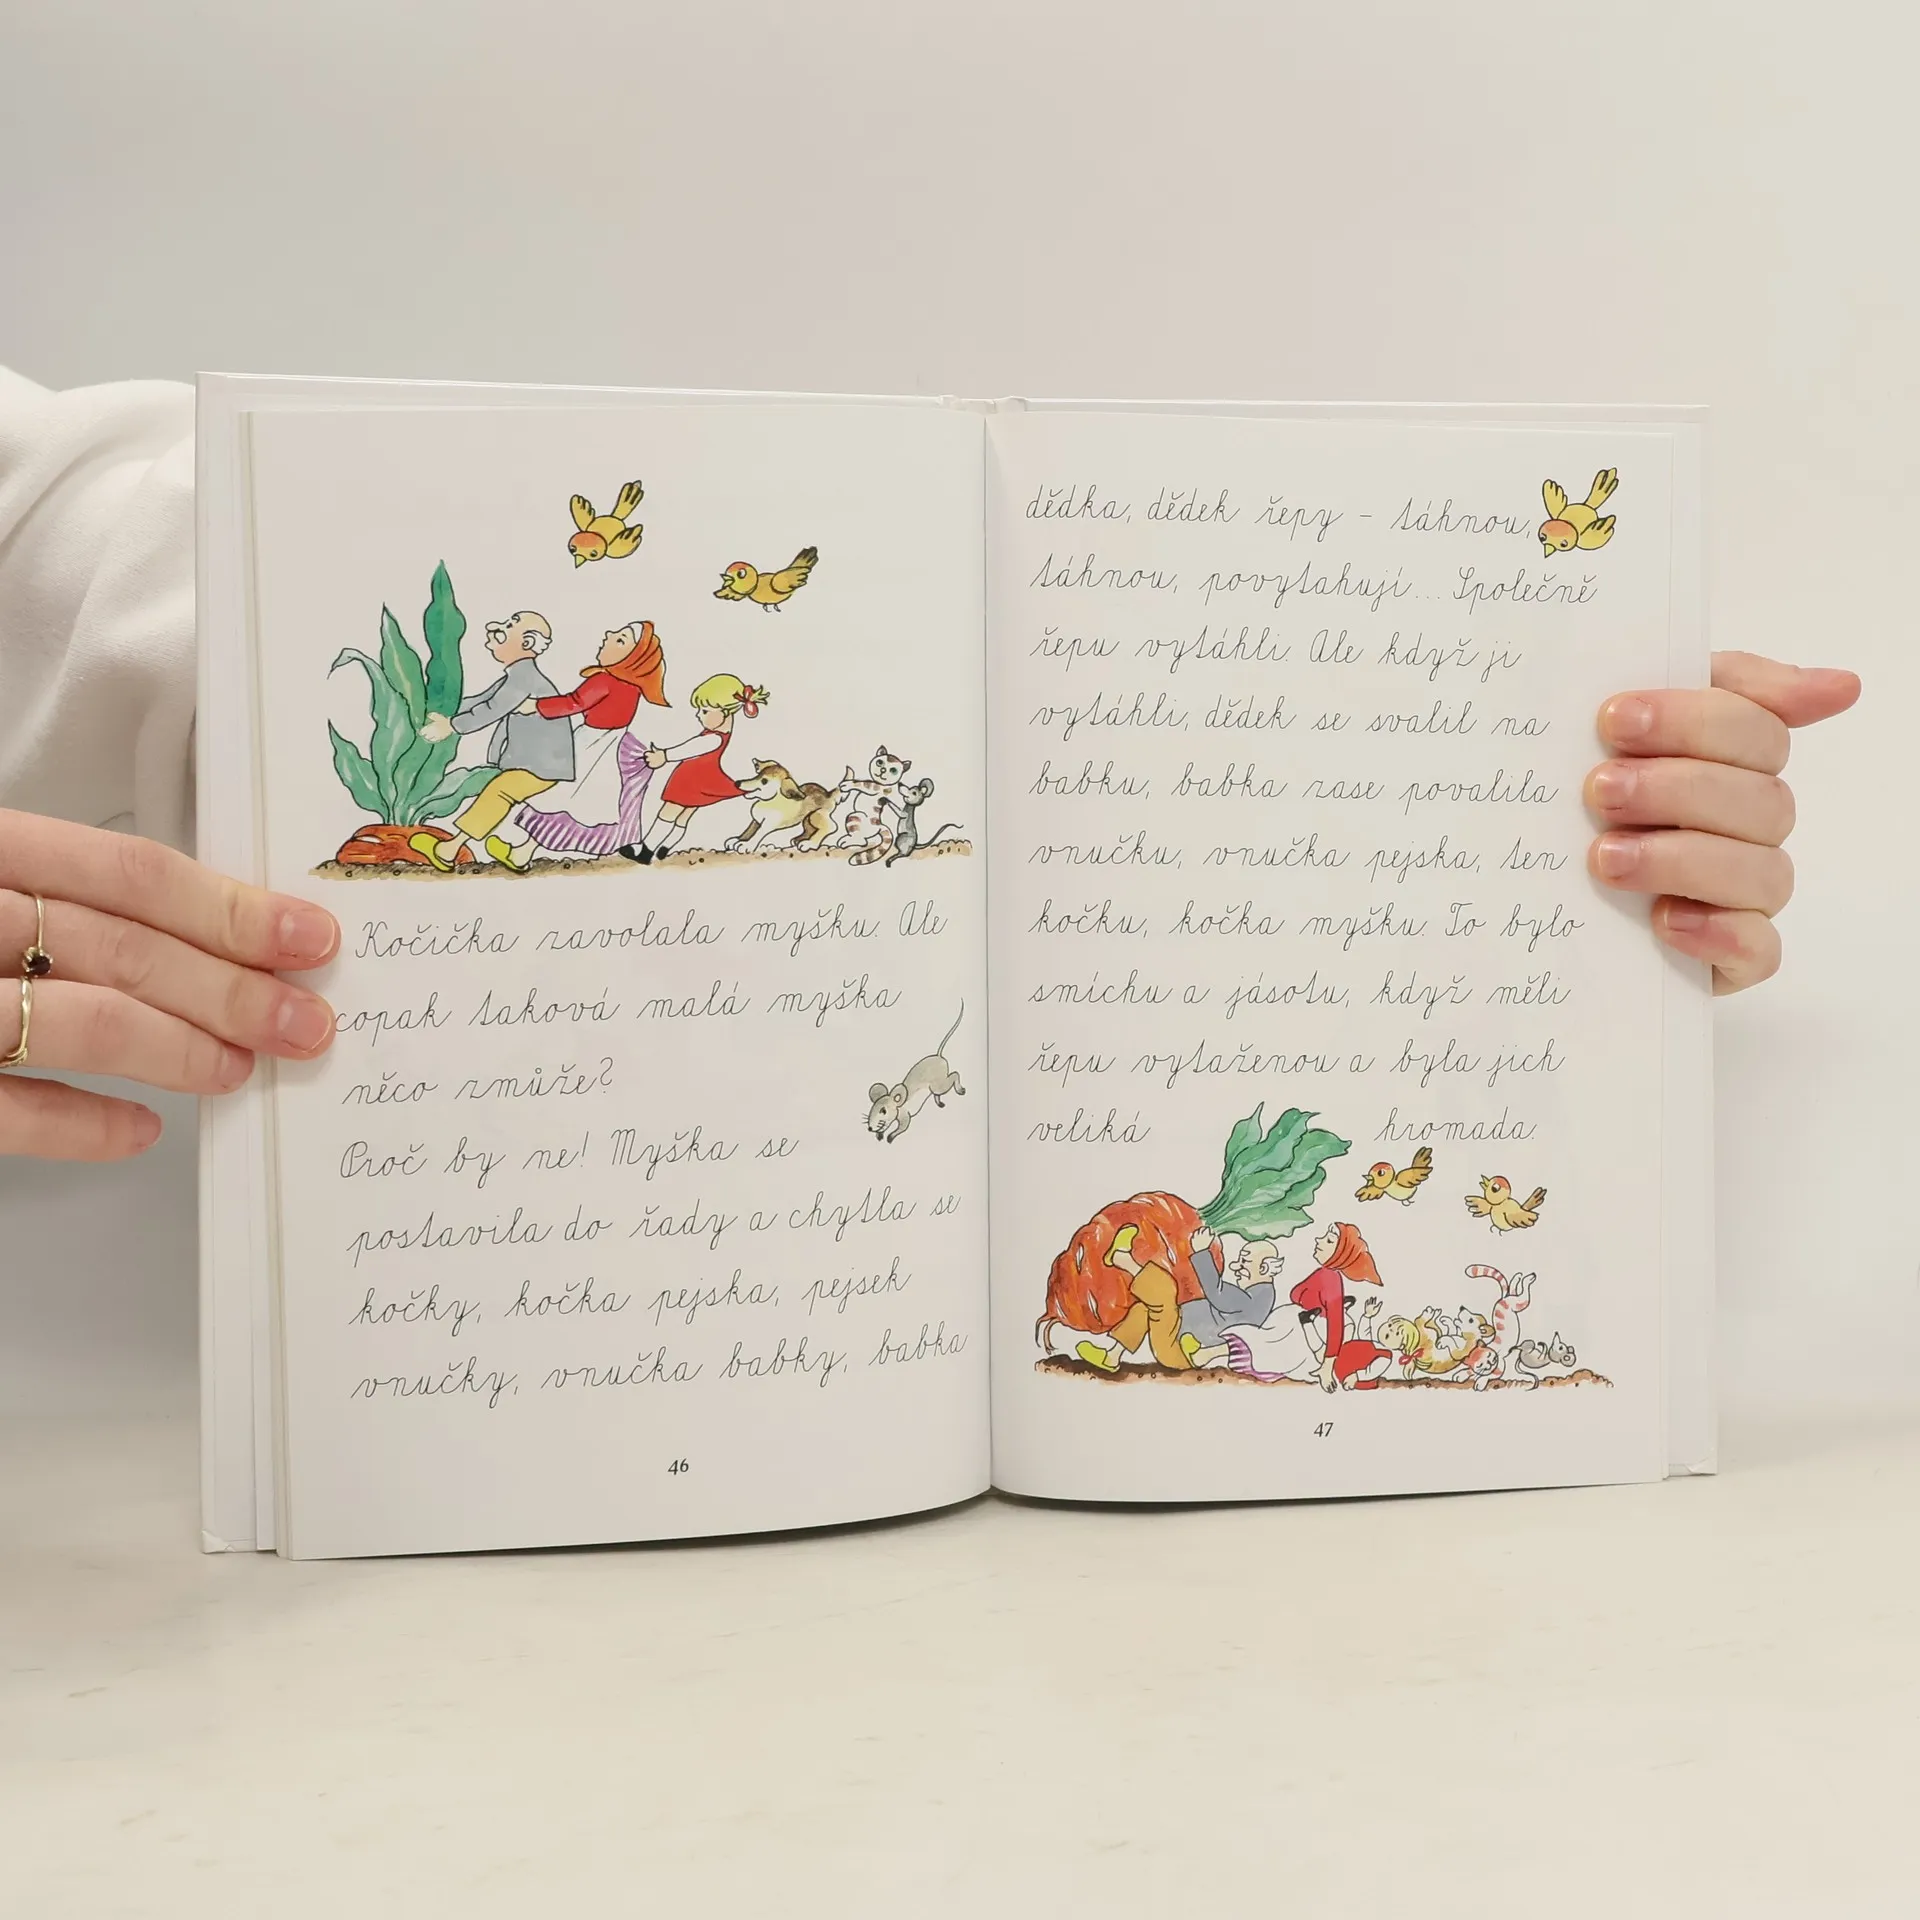 Kočička zavolala myšku. Ale
copak taková malá myška
něco zmůže?
Proč by ne! Myška se
postavila do řady a chytla se
kočky, kočka pejska, pejsek
vnučky, vnučka babky, babka
46
dědka, dědek řepy – táhnou,
táhnou, povytahují... Společně
řepu vytáhli. Ale když ji
vytáhli, dědek se svalil na
babku, babka zase povalila
vnučku, vnučka pejska, ten
kočku, kočka myšku. To bylo
smíchu a jásotu, když měli
řepu vytaženou a byla jich
veliká hromada.
47